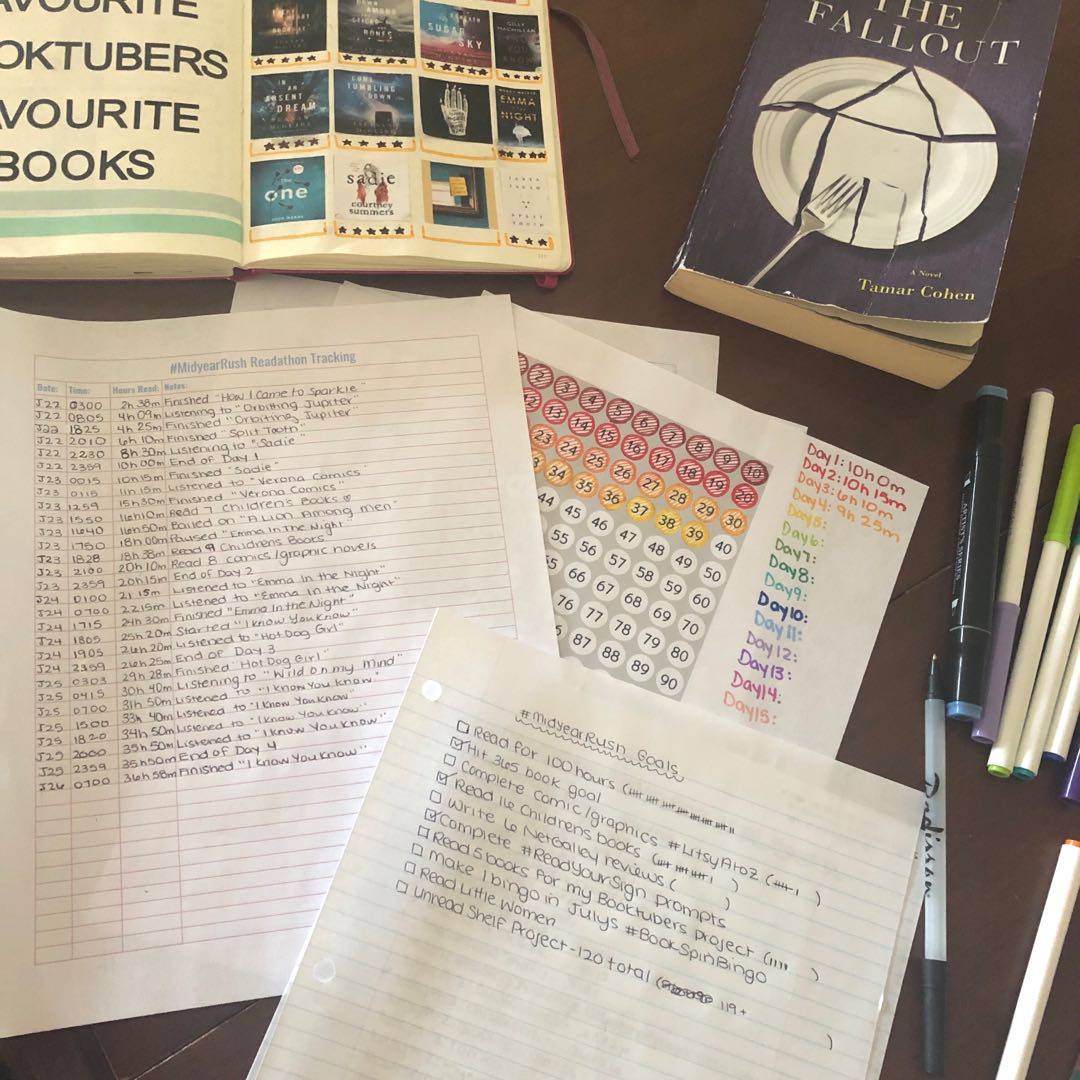 AVOURITE
OKTUBERS
AVOURITE
BOOKS
SUGAR
SKY
BONES
GILLY
MACMILLAN
IN AN
ABSENT
DREAM
COME
TUMBLING
DOWN
EMMA
IN THE
NIGHT
the
one
sadie
courtney
summers
SPLIT
TOOTH
THE
FALLOUT
A Novel
Tamar Cohen
#MidyearRush Readathon Tracking
Date: Time: Hours Read: Notes:
J22 0300 2h 38m Finished "How I Came to Sparkle"
J22 0805 4h 09m Listening to "Orbiting Jupiter"
J22 1825 4h 25m Finished "Orbiting Jupiter"
J22 2010 6h 10m Finished "Split Tooth"
J22 2230 8h 30m Listening to "Sadie"
J22 2359 10h 00m End of Day 1
J23 0015 10h 15m Finished "Sadie"
J23 0115 11h 15m Listened to "Verona Comics"
J23 1259 15h 30m Finished "Verona Comics"
J23 1550 16h 10m Read 7 children's Books
J23 1640 16h 50m Bailed on "A Lion Among men"
J23 1750 18h 00m Paused "Emma In The Night"
J23 1828 18h 38m Read 9 Childrens Books
J23 2100 20h 10m Read 8 comics/graphic novels
J23 2359 20h 15m End of Day 2
J24 0100 21 15m Listened to "Emma In the Night"
J24 0700 22 15m Listened to "Emma In the Night"
J24 1715 24h 30m Finished "Emma In the Night"
J24 1805 25h 20m Started "I Know You Know"
J24 1905 26h 20m Listened to "Hot Dog Girl"
J24 2359 26h 25m End of Day 3
J25 0303 29h 28m Finished "Hot Dog Girl"
J25 0415 30h 40m Listening to "Wild on my Mind"
J25 0700 31h 50m Listened to "I Know You Know"
J25 1500 33h 40m Listened to "I Know You Know"
J25 1820 34h 50m Listened to "I Know You Know"
J25 2000 35h 50m Listened to "I Know You Know"
J25 2359 35h50m End of Day 4
J26 0700 36h 58m Finished "I Know You Know"
2 3 4 5 6 7 8 9 10
12 13 14 15 16 17 18 19 20
23 24 25 26 27 28 29 30
34 35 36 37 38 39 40
44 45 46 47 48 49 50
55 56 57 58 59 60
65 66 67 68 69 70
76 77 78 79 80
87 88 89 90
Day 1: 10h 0m
Day 2: 10h 15m
Day 3: 6h 10m
Day 4: 9h 25m
Day 5:
Day 6:
Day 7:
Day 8:
Day 9:
Day 10:
Day 11:
Day 12:
Day 13:
Day 14:
Day 15:
#MidyearRush Goals
Read for 100 hours (
Hit 365 book goal
Complete comic/graphics #LitsyAtoZ ( )
Read 16 Childrens books ( )
Write 6 NetGalley reviews ( )
Complete #ReadYourSign prompts
Read 5 books for my Booktubers project ( )
Make 1 bingo in Julys #BookSpinBingo
Read Little Women
Unread Shelf Project - 120 total ( 119+ )